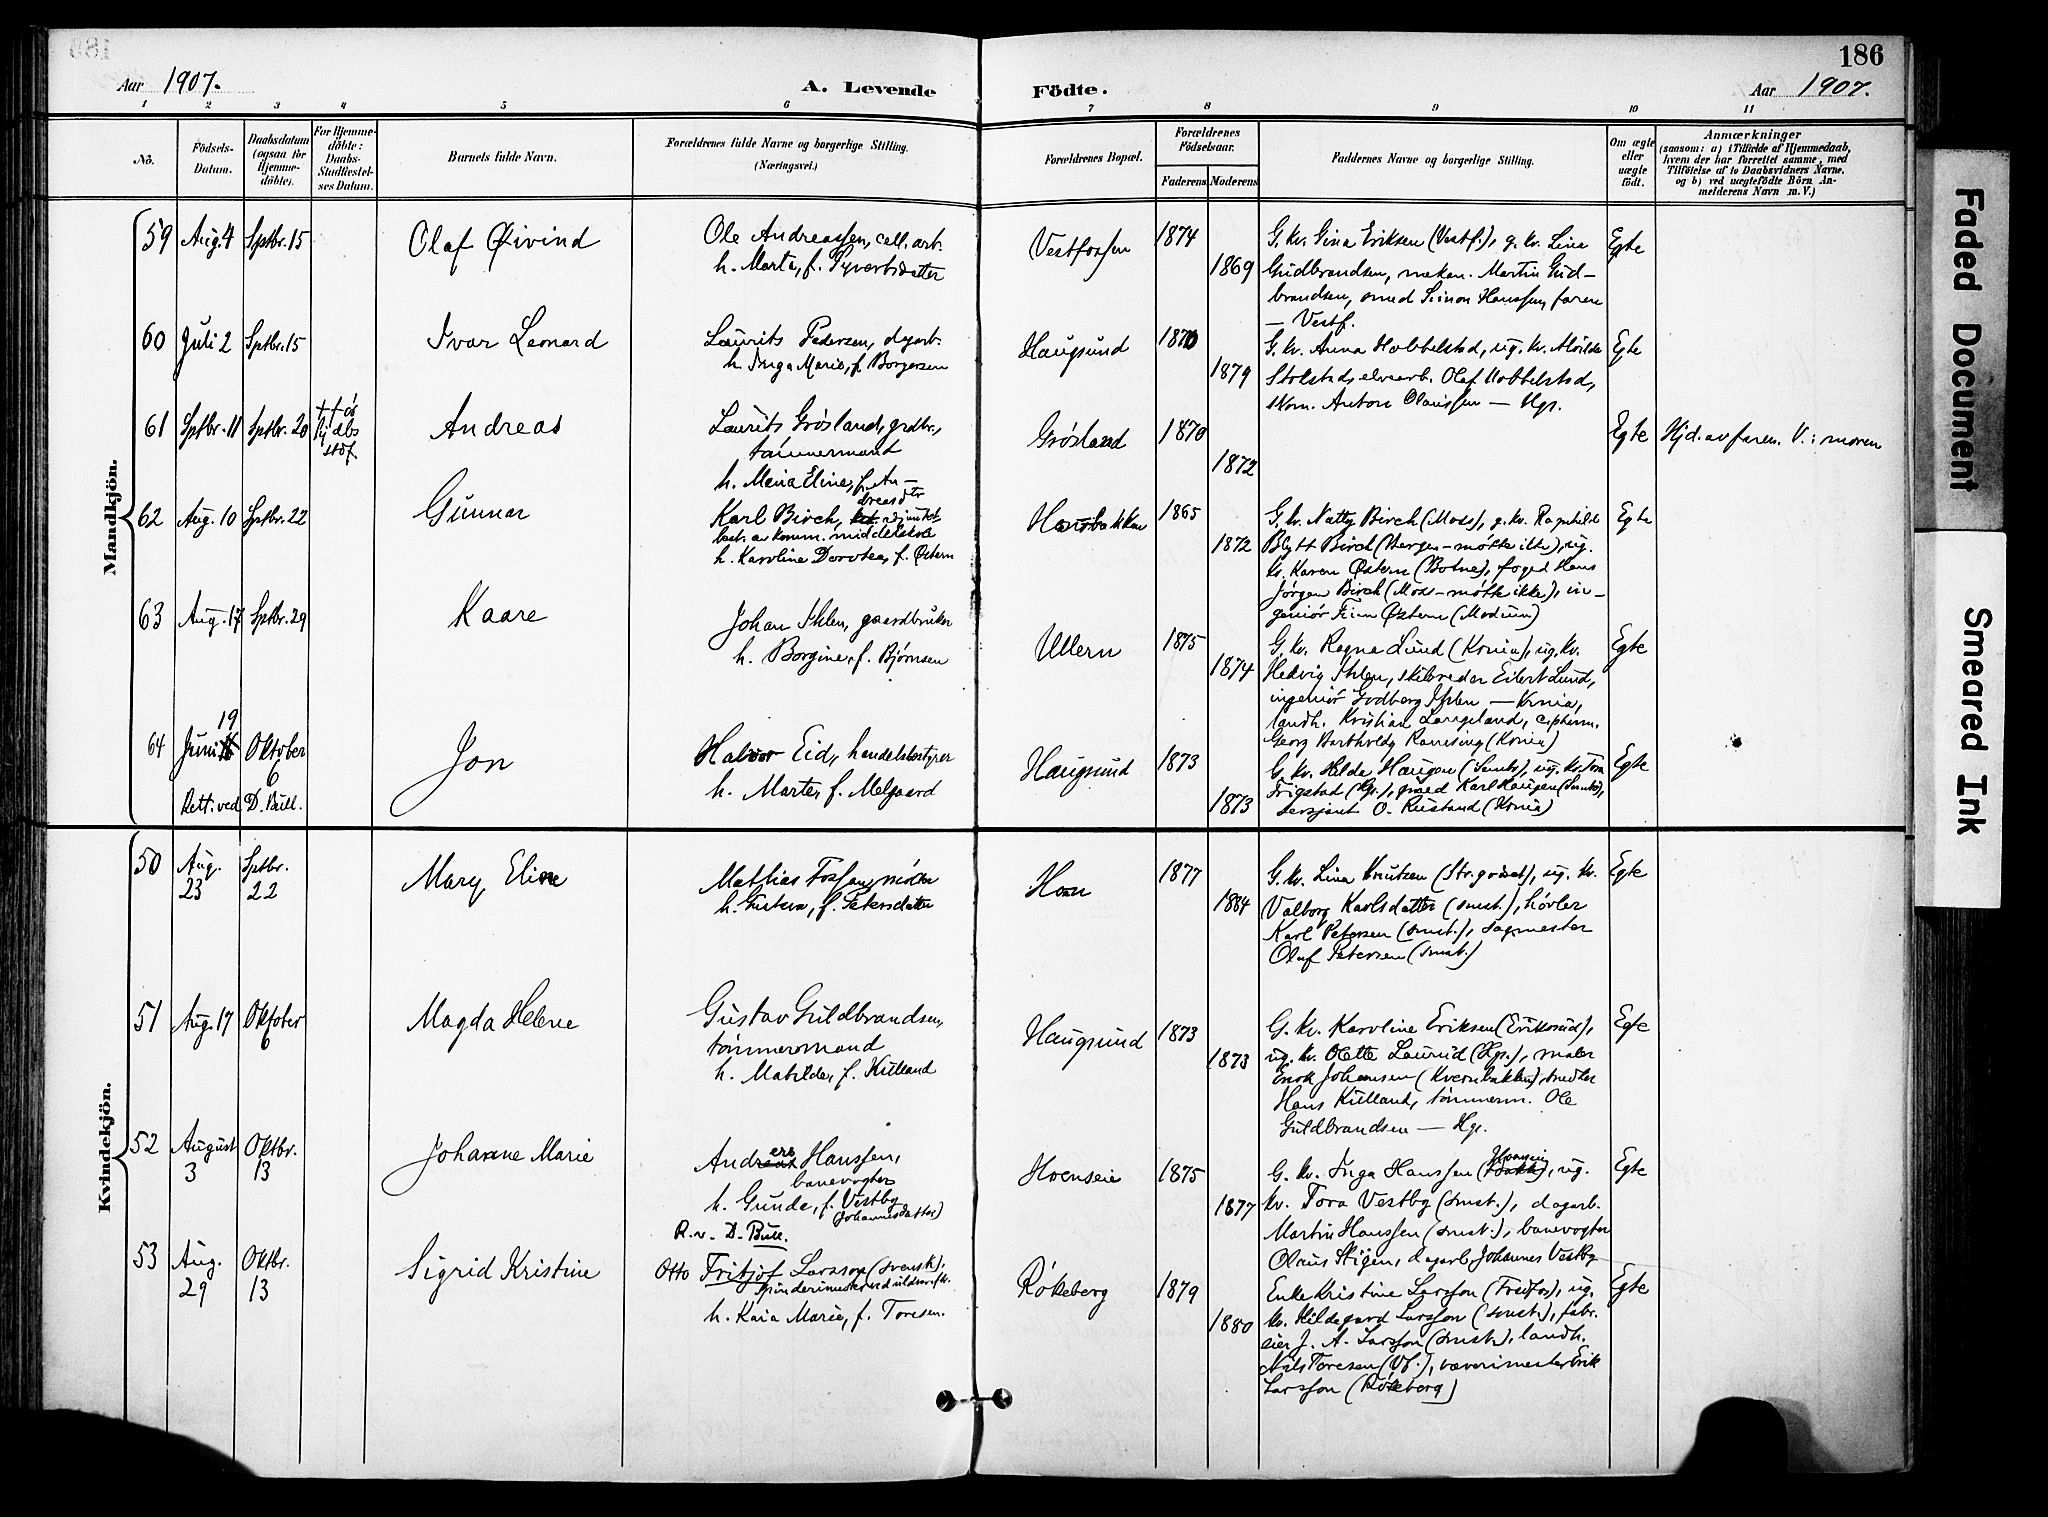 186
Aar 1907. A. Levende Födte. Aar 1907.
1 2 3 4 5 6 7 8 9 10 11
No.
Födsels-Datum.
Daabsdatum (ogsaa for Hjemmedöbte).
For Hjemmedöbte: Daabs-Stadfæstelses Datum.
Barnets fulde Navn.
Forældrenes fulde Navne og borgerlige Stilling.
(Næringsvei.)
Forældrenes Bopæl.
Forældrenes Födselsaar.
Faderens. Moderens.
Faddernes Navne og borgerlige Stilling.
Om ægte eller uægte födt.
Anmærkninger
(saasom: a) i Tilfælde af Hjemmedaab,
hvem der har forrettet samme, med
Tilföielse af to Daabsvidners Navne,
og b) ved uægtefödte Börn An-
melderens Navn m. V.)
Mandkjön.
59 Aug. 4 Sptbr. 15 Olaf Øivind
Ole Andreassen, cell. arb.
h. Marta, f. Syvertsdatter
Vestfossen 1874 1869
G. kv. Gina Eriksen (Vestf.), g. kv. Lina
Gudbrandsen, mekan. Martin Gud-
brandsen, smed Simon Hanssen, faren
— Vestf.
Egte
60 Juli 2 Sptbr. 15 Ivar Leonard
Laurits Pedersen, dagarb.
h. Inga Marie, f. Borgersen
Haugsund 1870 1879
G. kv. Anna Hobbelstad, ug. kv. Alvilde
Stolstad, elvearb. Olaf Hobbelstad,
skom. Anton Olaussen — Hgs.
Egte
61 Sptbr. 11 Sptbr. 20 Andreas
Laurits Grøsland, grdbr.,
tømmermand
h. Maria Eline, f. An-
dreasdtr
Grøsland 1870 1872
Egte Hjd. av faren. V.: moren
62 Aug. 10 Sptbr. 22 Gunnar
Karl Birch, adjunkt
best. av komm. middelskole
h. Karoline Dorotea, f. Østern
1865 1872
G. kv. Natty Birch (Moss), g. kv. Ragnhild
Blytt Birch (Bergen – møtte ikke), ug.
kv. Karen Østern (Botne), foged Hans
Jørgen Birch (Moss – møtte ikke), in-
geniør Finn Østern (Modum)
Egte
63 Aug. 17 Sptbr. 29 Kaare
Johan Ihlen, gaardbruker
h. Borgine, f. Bjørnsen
Ullern 1875 1874
G. kv. Ragna Lund (Krnia), ug. kv.
Hedvig Ihlen, skibsreder Eilert Lund,
ingeniør Godberg Ihlen — Krnia,
landh. Kristian Langeland,
Georg Bartholdy (Krnia)
Egte
64 Juni 19 Oktober 6 Jon
Rett. ved D. Bull.
Halvor Eid, handelsbestyrer
h. Marte, f. Melgaard
Haugsund 1873 1873
G. kv. Hilda Haugen, ug. kv. Tora
Frigstad (Hgs.), smed Karl Haugen
sersjant O. Rustand (Krnia)
Egte
Kvindekjön.
50 Aug. 23 Sptbr. 22 Mary Eline
Mathias Fossen, møller
h. Gustava, f. Petersdatter
Hoen 1877 1884
G. kv. Lina Knutsen (Str. godset), ug. kv.
Valborg Karlsdatter (smst.), høvler
Karl Petersen (smst.), sagmester
Olaf Petersen (smst.)
Egte
51 Aug. 17 Oktober 6 Magda Helene
Gustav Guldbrandsen,
tømmermand
h. Matilde, f. Kulland
Haugsund 1873 1873
G. kv. Karoline Eriksen (Eriksrud),
ug. kv. Olette Laurud (Hgs.), maler
Enok Johansen (Kvernbakken), snedker
Hans Kulland, tømmerm. Ole
Guldbrandsen — Hgs.
Egte
52 August 3 Oktbr. 13 Johanne Marie
Anders Hanssen,
banevogter
h. Gunda, f. Vestby
(Johannesdatter)
R. v. D. Bull.
Hoenseie 1875 1877
G. kv. Inga Hanssen (Hoenseie), ug.
kv. Tora Vestby (smst.), dagarb.
Martin Hanssen (smst.), banevogter
Olaus Stigen, dagarb. Johannes Vestby
Egte
53 Aug. 29 Oktbr. 13 Sigrid Kristine
Otto Fritjof Larsson (svensk),
spinderimester ved uldvarefbr.
h. Kaia Marie, f. Toresen.
Røkeberg 1879 1880
Enke Kristine Larsson (Fredfos), ug.
kv. Hildegard Larsson (smst.), fabr.
eier J. A. Larsson (smst.), landh.
Nils Toresen (Vf.), væverimester Erik
Larsson (Røkeberg)
Egte
Faded Document
Smeared Ink